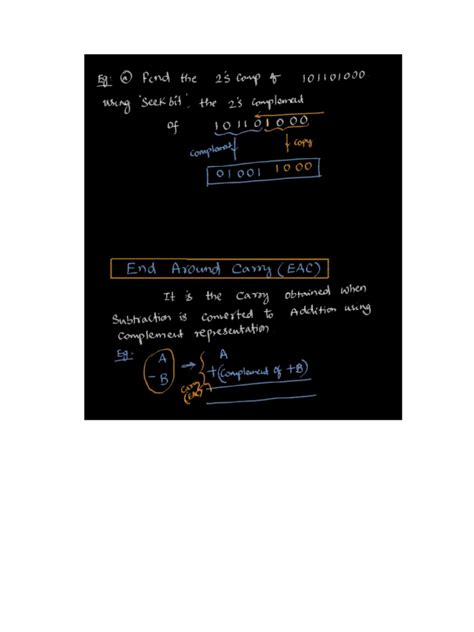 Eg: ⓐ Find the 2's Comp of 101101000
using 'Seek bit', the 2's complement
of 101101000
complement copy
01001 1000
End Around Carry (EAC)
It is the Carry obtained when
Subtraction is converted to Addition using
complement representation
Eg:
A → A
- B +(complement of +B)
Carry (EAC) +